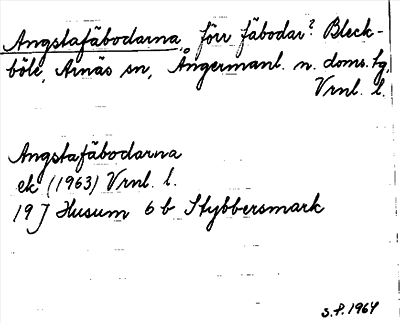 Angstafäbodarna, förr fäbodar? Bleck-
böle, Arnäs sn, Ångermanl. n. doms. tg,
Vrnl. l.
Angstafäbodarna
ek (1963) Vrnl. l.
19 J Husum 6 b Stybbersmark
S.F. 1964